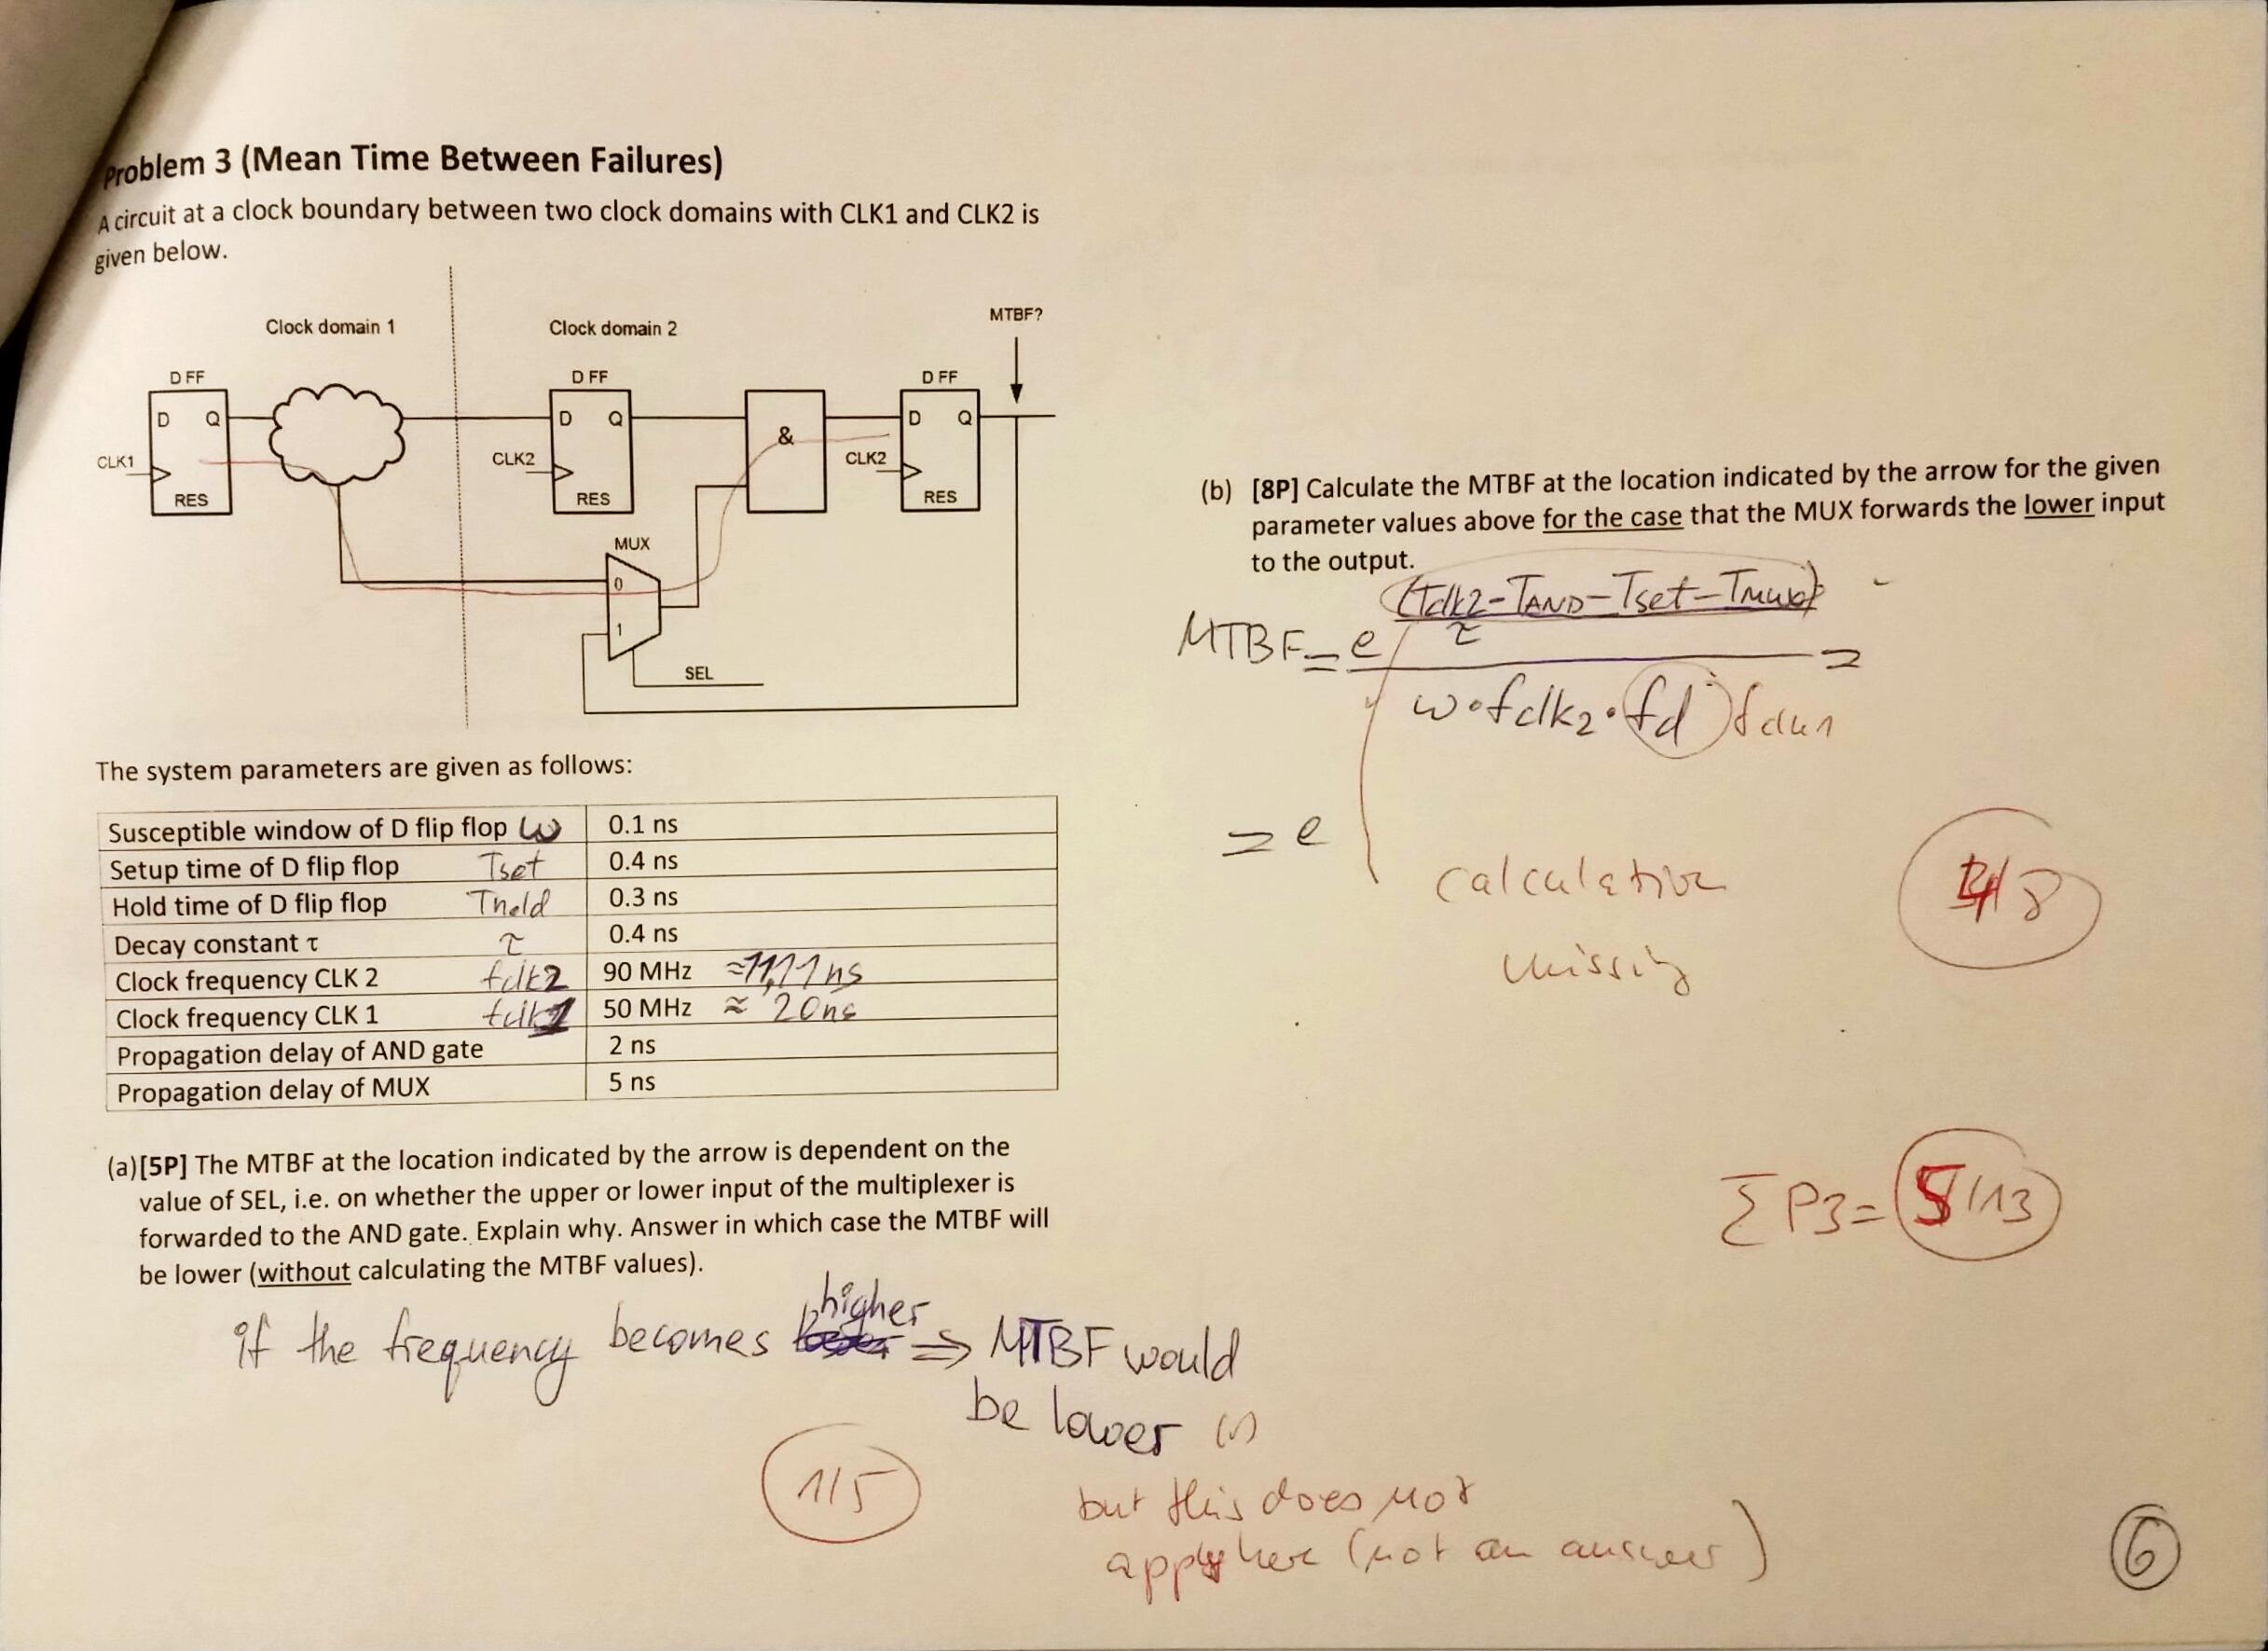 Problem 3 (Mean Time Between Failures)
A circuit at a clock boundary between two clock domains with CLK1 and CLK2 is
given below.
Clock domain 1
Clock domain 2
MTBF?
D FF
D FF
D FF
D Q
D Q
&
D Q
CLK1
CLK2
CLK2
RES
RES
RES
MUX
0
1
SEL
The system parameters are given as follows:
Susceptible window of D flip flop ω 0.1 ns
Setup time of D flip flop Tset 0.4 ns
Hold time of D flip flop Thold 0.3 ns
Decay constant τ τ 0.4 ns
Clock frequency CLK 2 fclk2 90 MHz ≈11,11ns
Clock frequency CLK 1 fclk1 50 MHz ≈ 20ns
Propagation delay of AND gate 2 ns
Propagation delay of MUX 5 ns
(a)[5P] The MTBF at the location indicated by the arrow is dependent on the
value of SEL, i.e. on whether the upper or lower input of the multiplexer is
forwarded to the AND gate. Explain why. Answer in which case the MTBF will
be lower (without calculating the MTBF values).
higher
if the frequency becomes ⇒ MTBF would
be lower (√)
1/5
but this does not
apply here (not an answer)
(b) [8P] Calculate the MTBF at the location indicated by the arrow for the given
parameter values above for the case that the MUX forwards the lower input
to the output.
(Tclk2-TAND-Tset-Tmux)
τ
MTBF = e =
ω•fclk2•fd fclk1
= e
calculation
missing
4/8
Σ P3= 5/13
6